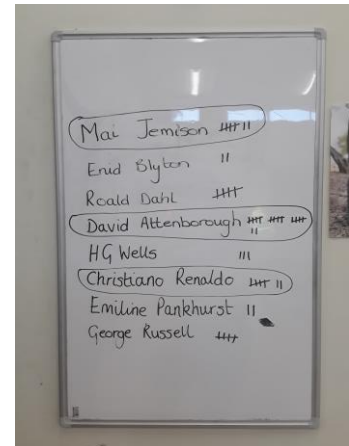 Mai Jemison 𝍸 II
Enid Blyton II
Roald Dahl 𝍸
David Attenborough 𝍸 𝍸 𝍸
II
HG Wells III
Christiano Renaldo 𝍸 II
Emiline Pankhurst II
George Russell 𝍸